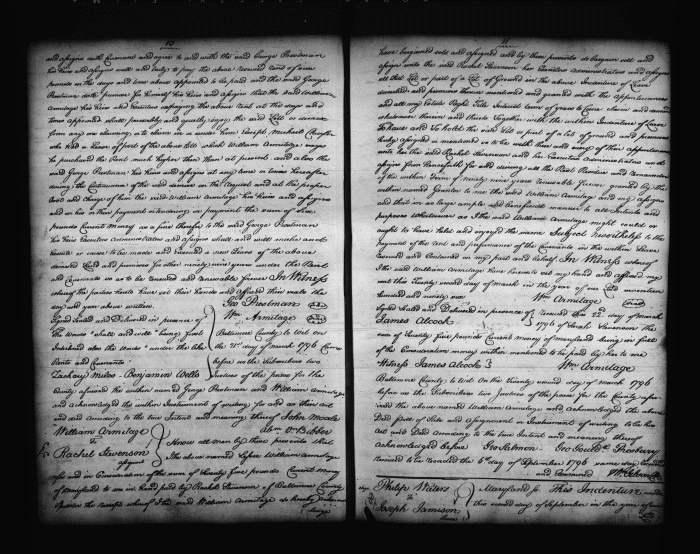 and assigns doth Covenant and agree to and with the said George Prestman
his Heirs and assigns well and truly to pay the above
pounds on the days and times above appointed to be paid and the said George
Prestman doth promise for himself his Heirs and assigns that the said William
Armitage his Heirs and paying the above Rent at the days and
time appointed shall peaceably and quietly enjoy the said Lott or demise
from any one claiming or to claim in or under him
who had a Lease of part of the above Lott which William Armitage
he purchased the Rent much higher than than at present and also the
said George Prestman his Heirs and assigns at any time or times hereafter
during the Continuance of the said demise on the Request and at the proper
Cost and Charge of him the said William Armitage his Heirs and assigns
and on his or their payment or tendering in payment the sum of
pounds Current Money as a fine therefor to the said George Prestman
his Heirs Executors Administrators and assigns shall and will make and
execute or cause to be made and executed a new Lease of the above
demised Land and premises for other ninety nine years under the Rent
and Covenants so as to be renewed and renewable forever In Witness
whereof the parties hereto have set their hands and affixed their seals the
day and year above written
Geo Prestman
Wm Armitage
Signed Sealed and Delivered in presence of
The words "shall and will" being first
Interlined also the words "under the like
Rents and Covenants
Zachary Miles - Benjamin Wells
Baltimore County to wit On
the 21st day of March 1796 Came
before us the Subscribers two
Justices of the peace for the
County aforesaid the within named George Prestman and William Armitage
and acknowledged the within Instrument of writing for and as their act
and deed according to the true Intent and meaning thereof John Moale
William Armitage
To
Rachel Stevenson
assignmt
Know all men by these presents that
I the above named Lessee William Armitage
for and in Consideration of the sum of Twenty five pounds Current Money
of Maryland to me in hand paid by Rachel Stevenson of Baltimore County
the receipt whereof I the said William Armitage do hereby
have bargained sold and assigned and by these presents do bargain sell and
assign unto the said Rachel Stevenson her Executors Administrators and assigns
all that Lot or part of a Lot of Ground in the above Indenture of Lease
demised and premises therein mentioned and granted with the appurtenances
and all my Estate Right Title Interest term of years to Come claim and demand
whatsoever therein and thereto Together with the within Indenture of Lease
To have and To hold the said Lot or part of a lot of ground and premises
hereby assigned as mentioned so to be with them and every of their appurtenances
unto her the said Rachel Stevenson and her Executors Administrators and
assigns from henceforth for and during all the Rest Residue and Remainder
of the within Term of ninety nine years renewable forever granted by the
within named Grantor to me the said William Armitage and my assigns
and that in as large ample and beneficial manner to all intents and
purposes Whatsoever as I the said William Armitage might could or
ought to have held and enjoyed the same Subject nevertheless to the
payment of the rent and performance of the Covenants in the within Lease
reserved and Contained on my part and behalf. In Witness whereof
I the said William Armitage have hereunto set my hand and affixed my
seal this Twenty second day of March in the year of our Lord seventeen
hundred and ninety six
Wm Armitage
Signed Sealed and Delivered in presence of
James Alcock
Received this 22d day of March
1796 of Sarah Stevenson the
sum of Twenty five pounds Current Money of Maryland being in full
of the Consideration money within mentioned to be paid by her to me
Witness James Alcock
Wm Armitage
Baltimore County to wit On the Twenty second day of March 1796
before us the Subscribers two Justices of the peace for the County afore
said the above named William Armitage and Acknowledged the above
Deed of Sale and Assignment or Instrument of writing to be his
act and Deed According to the true Intent and meaning thereof
Acknowledged before Geo Salmon. Geo Gouldh. Presbury
Received to be recorded the 6th day of September 1796 same day recorded
and Examined
Philip Waters
To
Joseph Jamison
Maryland ss. This Indenture made
this second day of September in the year of our